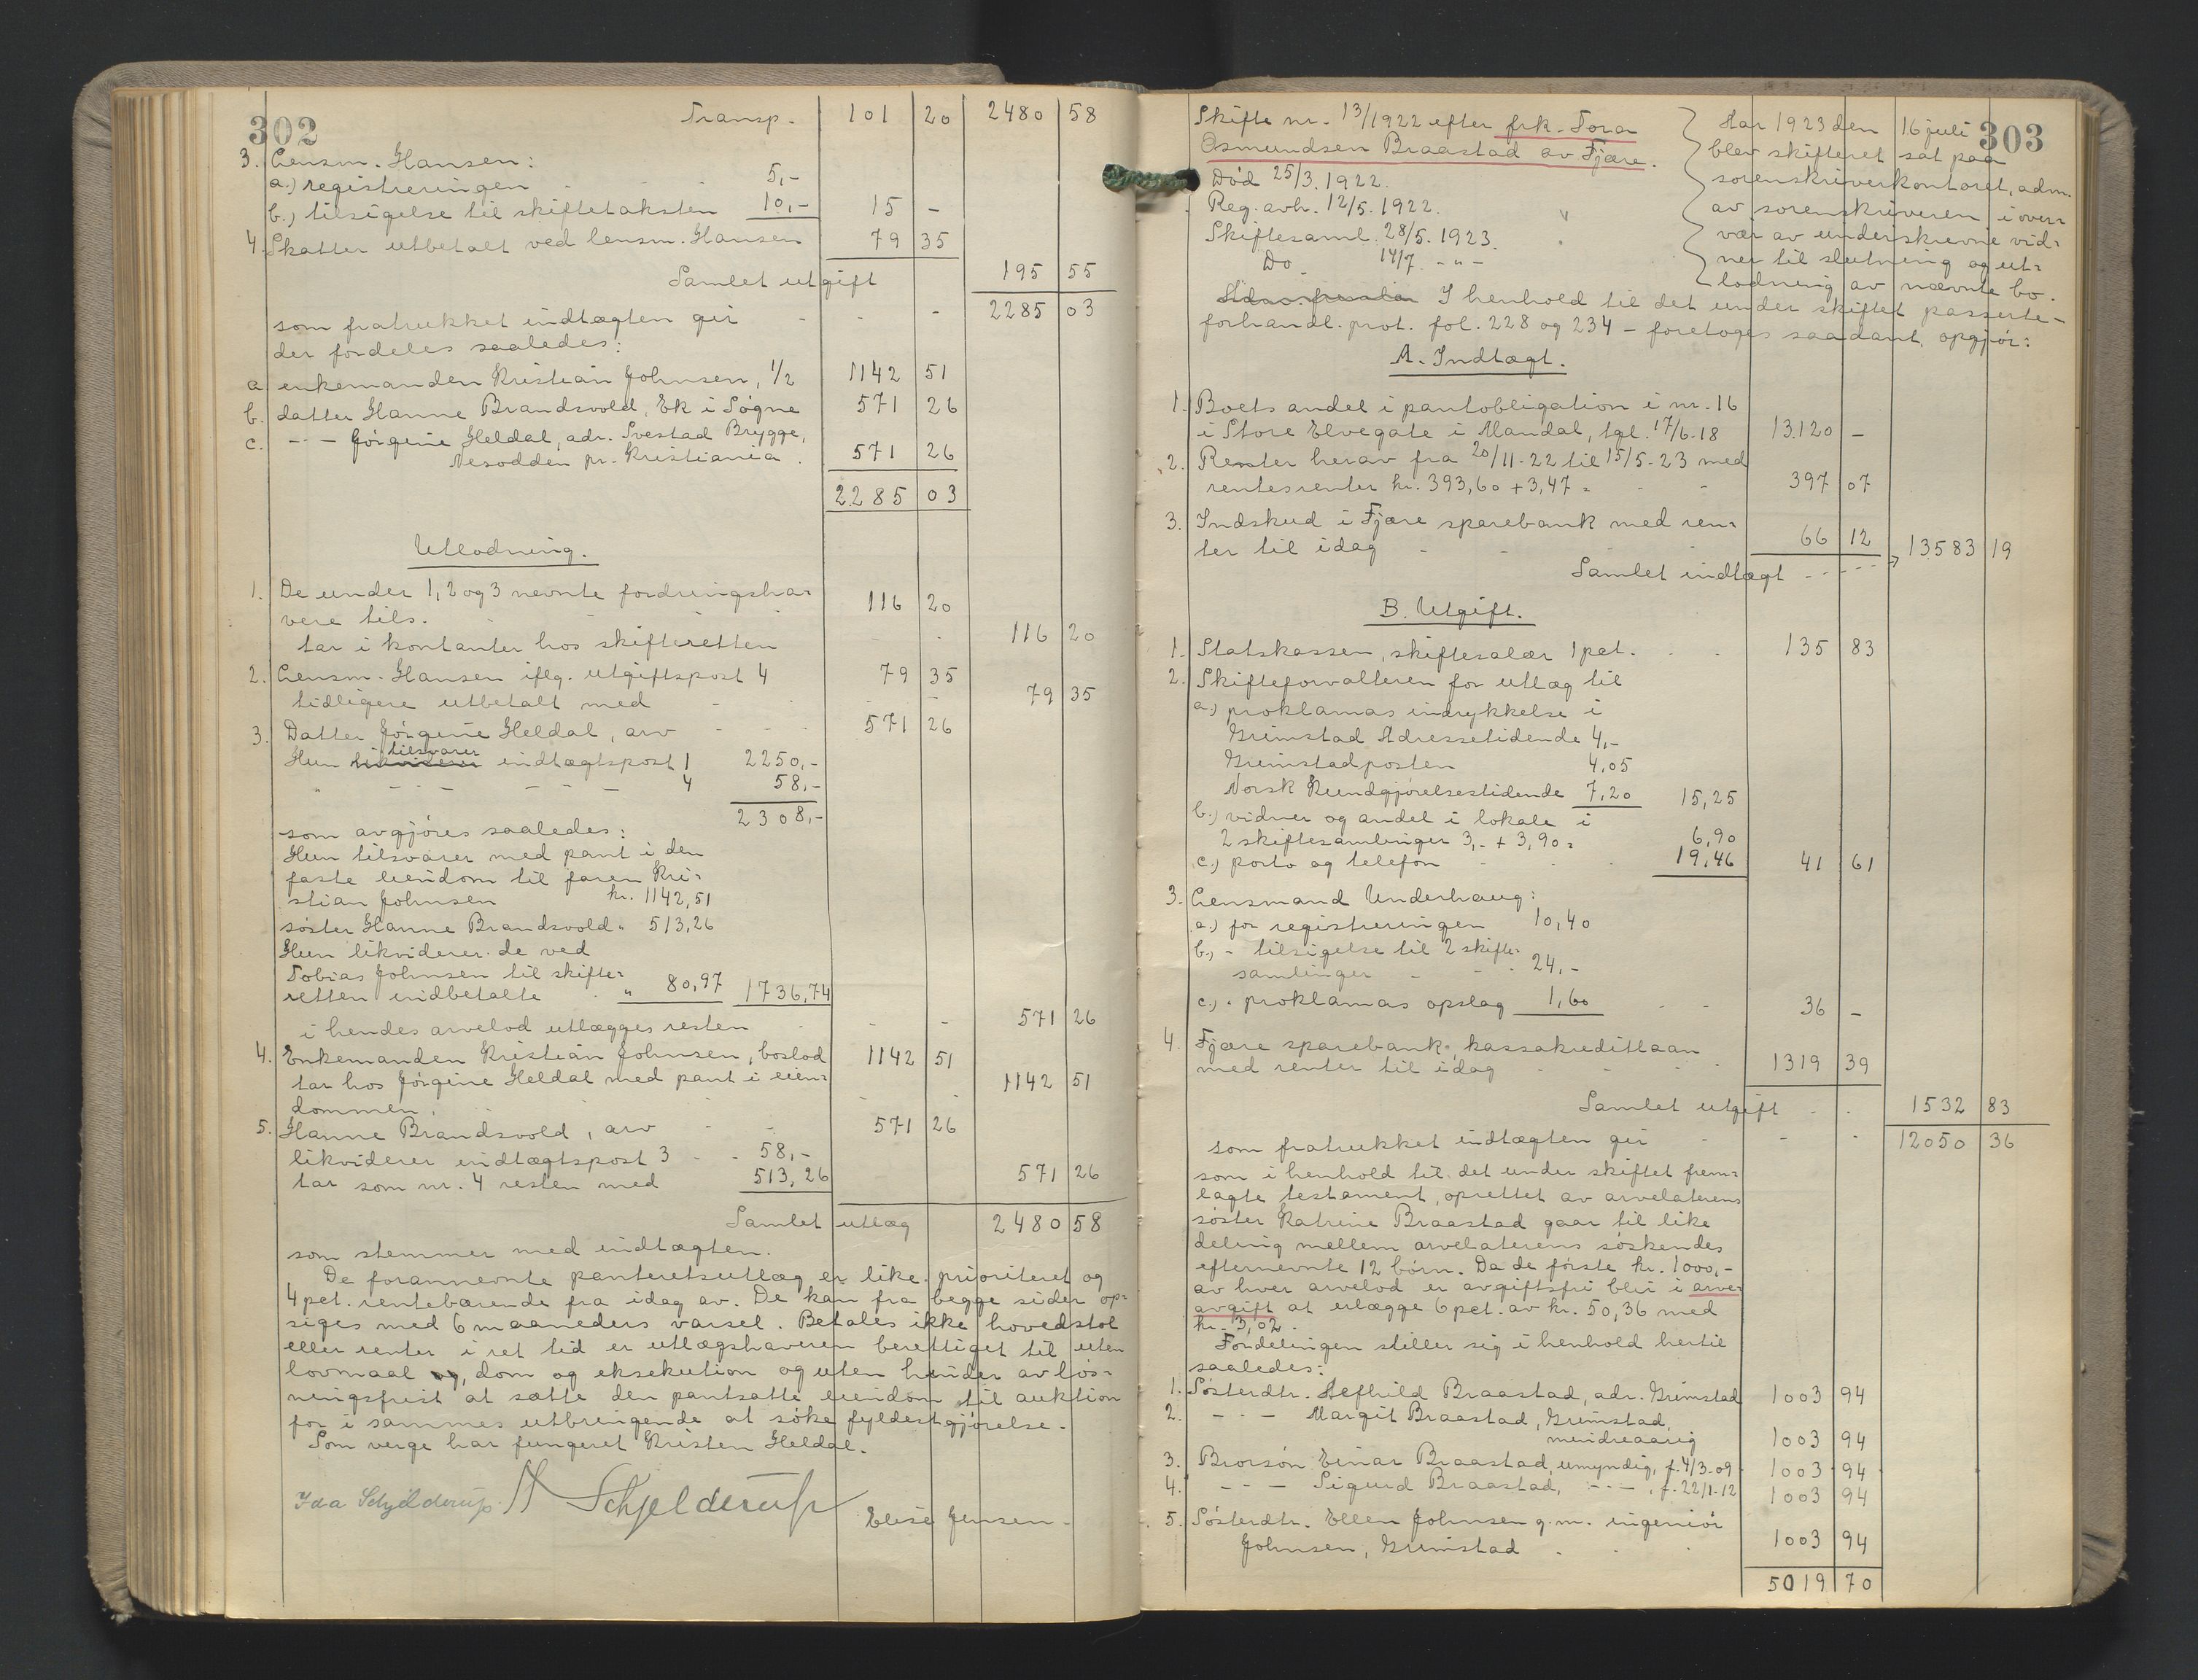 302
Transp. 101 20 2480 58
3. Lensm. Hansen:
a.) registreringen 5,-
b.) tilsigelse til skiftetaksten 10,- 15 -
4. Skatter utbetalt ved lensm. Hansen 79 35
Samlet utgift 195 55
som fratrukket indtægten gir - - - 2285 03
der fordeles saaledes:
a enkemanden Kristian Johnsen, 1/2 1142 51
b. datter Hanne Brandsvold, Ek i Søgne 571 26
c. -"- Jørgine Heldal, adr. Svestad Brygge,
Nesodden pr. Kristiania. 571 26
2285 03
Utlodning.
1. De under 1, 2 og 3 nevnte fordringsha-
vere tils. 116 20
tar i kontanter hos skifteretten 116 20
2. Lensm. Hansen iflg. utgiftspost 4 79 35
tidligere utbetalt med - - 79 35
3. Datter Jørgine Heldal, arv - - - 571 26
Hun likviderer tilsvarer indtægtspost 1 2250,-
" - - - - - - 4 58,-
2308,-
som avgjøres saaledes:
Hun tilsvarer med pant i den
faste eiendom til faren Kri-
stian Johnsen kr. 1142,51
søster Hanne Brandsvold " 513,26
Hun likviderer de ved
Tobias Johnsen til skifte-
retten indbetalte " 80,97 1736,74
i hendes arvelod utlægges resten - - - 571 26
4. Enkemanden Kristian Johnsen, boslod 1142 51
tar hos Jørgine Heldal med pant i eien-
dommen. 1142 51
5. Hanne Brandsvold, arv - - 571 26
likviderer indtægtspost 3 - - 58,-
tar som nr. 4 resten med 513,26 571 26
Samlet utlæg 2480 58
som stemmer med indtægten.
De forannevnte panteretsutlæg er like prioriteret og
4 pct. rentebærende fra idag av. De kan fra begge sider op-
siges med 6 maaneders varsel. Betales ikke hovedstol
eller renter i ret tid er utlægshaveren berettiget til uten
lovmaal og, dom og eksekution og uten hinder av løs-
ningsfrist at sætte den pantsatte eiendom til auktion
for i sammes utbringende at søke fyldestgjørelse.
Som verge har fungeret Kristen Heldal.
Ida Schjelderup. Schjelderup
Elise Jensen.
303
Skifte nr. 13/1922 efter frk. Tora
Osmundsen Braastad av Fjære.
Død 25/3. 1922.
Reg. avh. 12/5. 1922.
Skiftesaml. 28/5. 1923.
Do 14/7 - " -
Aar 1923 den 16 juli
blev skifteret sat paa
sorenskriverkontoret, adm.
av sorenskriveren i over-
vær av underskrevne vid-
ner til slutning og ut-
lodning av nævnte bo.
I henhold til det under skiftet passerte -
forhandl. prot. fol. 228 og 234 - foretoges saadant opgjør:
A. Indtægt.
1. Boets andel i pantobligation i nr. 16
i Store Elvegate i Mandal, tgl. 17/6-18 13.120 -
2. Renter herav fra 20/11-22 til 15/5-23 med
rentesrenter kr. 393,60 + 3,47 = - - 397 07
3. Indskud i Fjære sparebank med ren-
ter til idag - - - 66 12
Samlet indtægt - - - - - 13583 19
B. Utgift.
1. Statskassen, skiftesalær 1 pct. - - 135 83
2. Skifteforvalteren for utlæg til
a.) proklamas indrykkelse i
Grimstad Adressetidende 4,-
Grimstadposten 4,05
Norsk Kundgjørelsestidende 7,20 15,25
b.) vidner og andel i lokale i
2 skiftesamlinger 3,- + 3,90 = 6,90
c.) porto og telefon - - - 19,46 41 61
3. Lensmand Underhaug:
a.) for registreringen 10,40
b.) - tilsigelse til 2 skifte-
samlinger - - - 24,-
c.) " proklamas opslag 1,60 - - 36 -
4. Fjære sparebank, kassakreditlaan
med renter til idag - - - 1319 39
Samlet utgift - - 1532 83
som fratrukket indtægten gir - - - 12050 36
som i henhold til det under skiftet frem-
lagte testament, oprettet av arvelaterens
søster Katrine Braastad gaar til like
deling mellem arvelaterens søskendes
efternevnte 12 børn. Da de første kr. 1000,-
av hver arvelod er avgiftsfri blir i arve-
avgift at erlægge 6 pct. av kr. 50,36 med
kr. 3,02.
Fordelingen stiller sig i henhold hertil
saaledes:
1. Søsterdtr. Aefhild Braastad, adr. Grimstad 1003 94
2. - " - Margit Braastad, Grimstad,
mindreaarig 1003 94
3. Brorsøn Einar Braastad, umyndig, f. 4/3-09 1003 94
4. - " - Sigurd Braastad, - " - , f. 22/1-12 1003 94
5. Søsterdtr. Ellen Johnsen g. m. ingeniør
Johnsen, Grimstad - - - 1003 94
5019 70